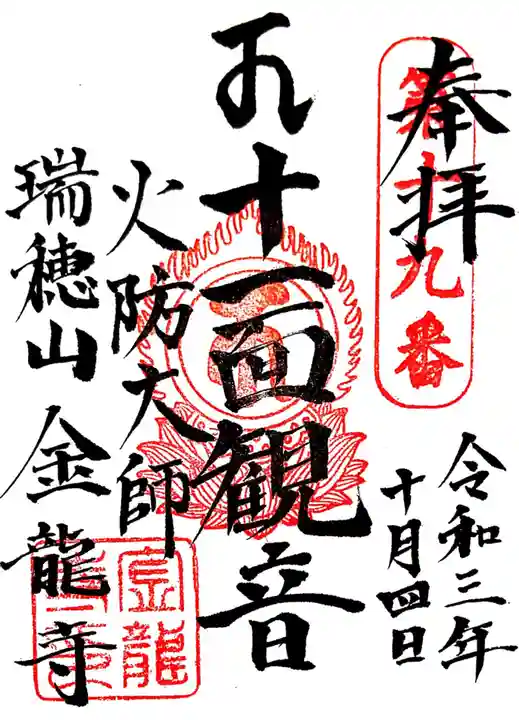 奉拝
九番
令和三年
十月四日
十一面観音
火防大師
瑞穂山 金龍寺
金龍